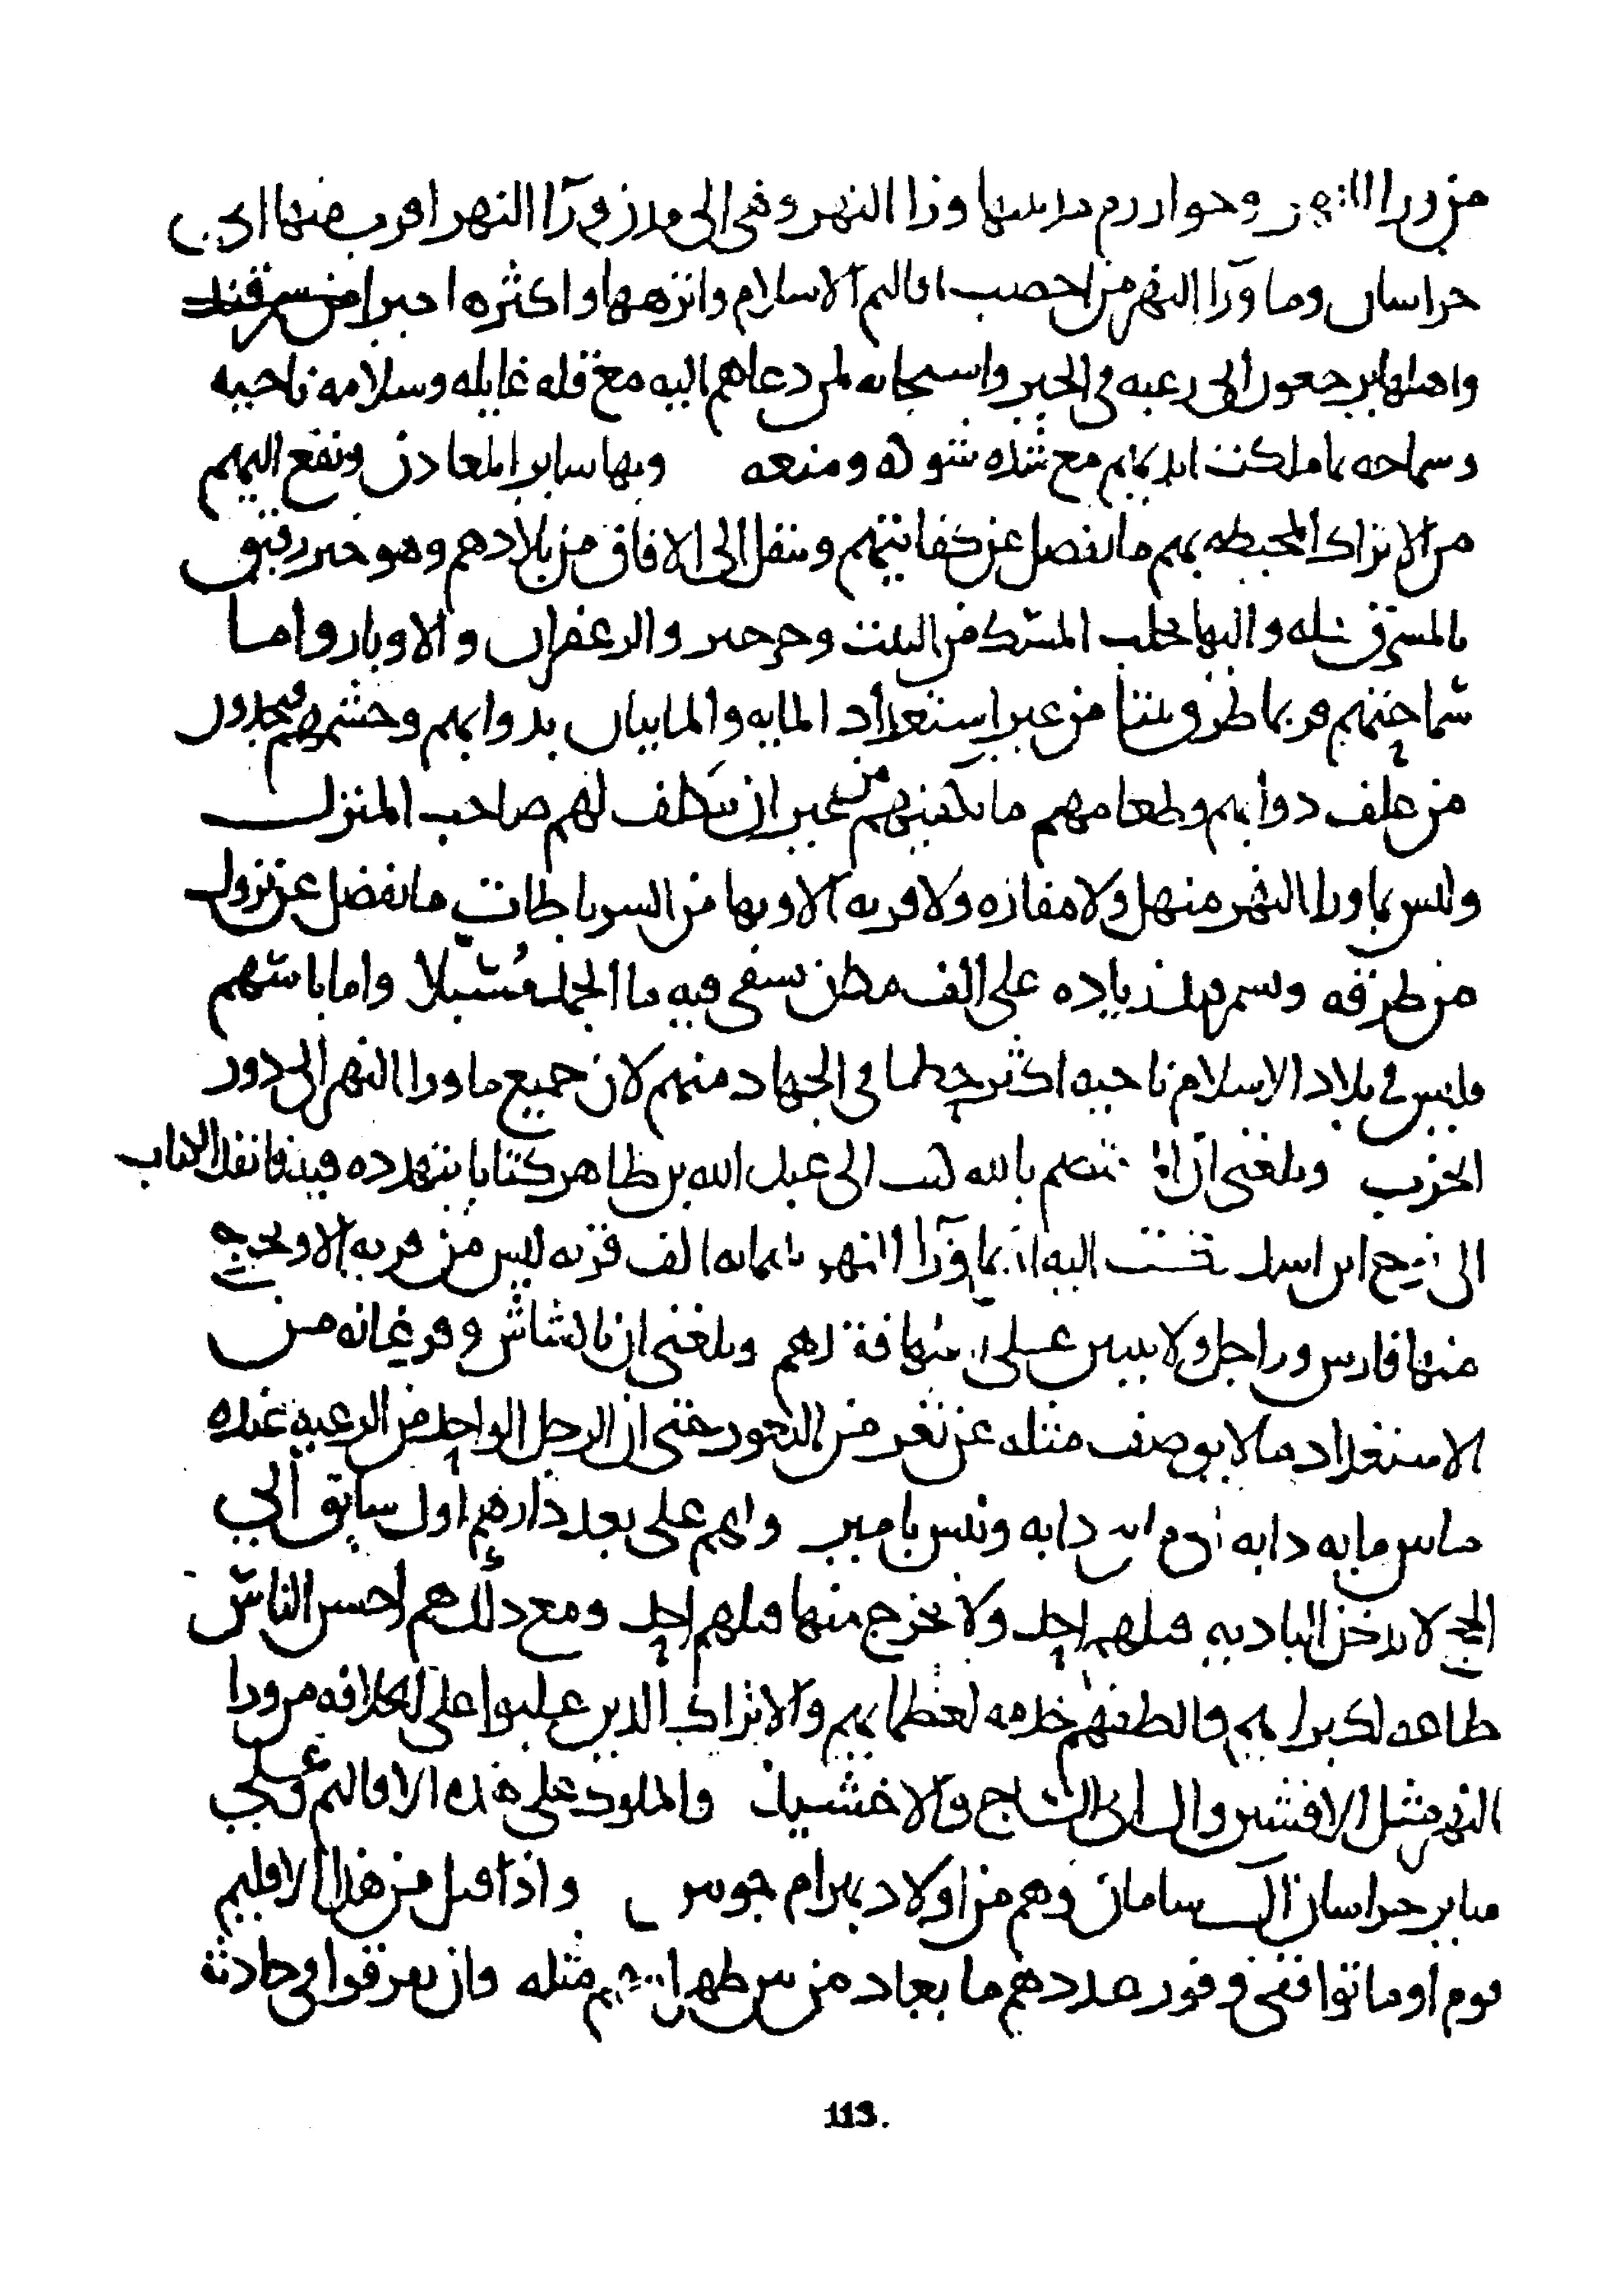 من ورا النهر وخوارزم مدينتها ورا النهر وهى الى مدن ورآا النهر اقرب منها الى
خراسان وما ورآا النهر من اخصب اقاليم الاسلام وانزهها واكثره اخيرا من سمرقند
واهلها يرجعون الى رغبه فى الخير واستجابه لمن دعاهم اليه مع قله غايله وسلامه ناحيه
وسماحه بما ملكت ايديهم مع شده شوكه ومنعه وبها ساير المعادن وتقع اليهم
من الاتراك المحيطه بهم ما يفصل عن كفايتهم وينقل الى الافاق من بلادهم وهو خير رقيق
بالمشرق كله واليها يجلب المسك من التبت وخرخيز والزعفران والاوبار واما
سماحتهم فربما طرق بيتنا من غير استعداد المايه والمايتان بدوابهم وحشمهم فيجدون
من علف دوابهم وطعامهم ما يكفيهم من غير ان يتكلف لهم صاحب المنزل
وليس بما ورا النهر منهل ولا مفازه ولا قريه الا وبها من الرباطات ما يفضل عن نزول
من طرقه وبسمرقند زياده على الف مكان يسقى فيه ما الجمد مُسَبلا واما باسهم
فليس في بلاد الاسلام ناحيه اكثر حظا فى الجهاد منهم لان جميع ما ورا النهر الى دور
الحرب وبلغنى ان المعتصم بالله كتب الى عبد الله بن طاهر كتابا يتهدده فيه فانفذ الكتاب
الى نوح ابن اسد فكتب اليه ان بما ورآا النهر ثلثمايه الف قريه ليس من قريه الا ويخرج
منها فارس وراجل ولا يبين على اهلها فقدهم وبلغنى ان بالشاش وفرغانه من
الاستعداد ما لا يوصف مثله عن ثغر من الثغور حتى ان الرجل الواحد من الرعيه عنده
ما بين مايه دابه الى دابه وليس بامير وانهم على بعد دارهم اول سابق الى
الحج لا يدخل الباديه قبلهم احد ولا يخرج منها قبلهم احد ومع ذلك هم احسن الناس
طاعه لكبرايهم والطفهم خدمه لعظمايهم والاتراك الذين غلبوا على الخلافه من ورا
النهر مثل الافشين وال ابى الساج والاخشيد والملوك على هذه الاقاليم وعلى
ساير خراسان آل سامان وهم من اولاد بهرام جوبين واذا قتل من هذا الاقليم
قوم او ماتوا ففى وفور عددهم ما يعاد من بين ظهرانيهم مثله وان تفرقوا فى حادثة
113.